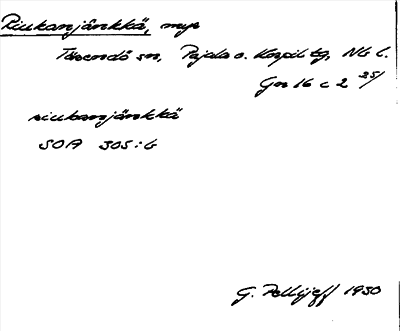 Riukanjänkkä, myr
Tärendö sn, Pajala o. Korpil tg, Nb l.
Gn 16 c 2 35/
riukanjänkkä
SOA 305:6
G. Pellijeff 1930